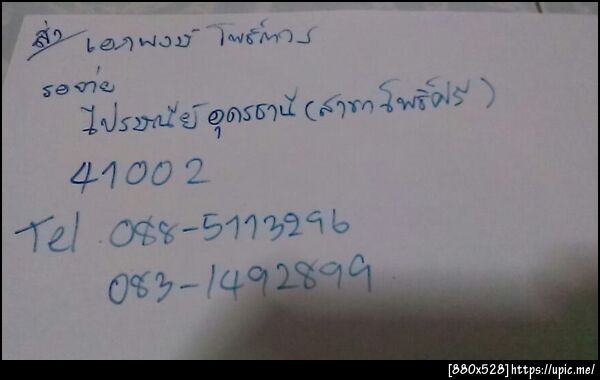 ส่ง เอกพงษ์ โพธิ์ถาวร
รอจ่าย
ไปรษณีย์อุดรธานี(สาขาโพธิ์ศรี)
41002
Tel 088-5113296
083-1492899
[880x528]https://upic.me/